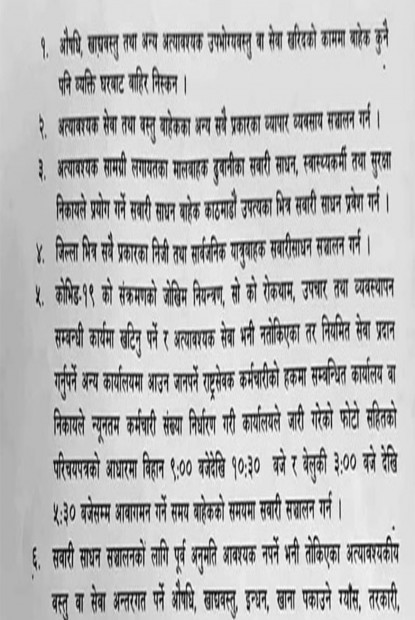 १. औषधि, खाद्यवस्तु तथा अन्य अत्यावश्यक उपभोग्यवस्तु वा सेवा खरिदको काममा बाहेक कुनै
पनि व्यक्ति घरबाट बाहिर निस्कन ।
२. अत्यावश्यक सेवा तथा वस्तु बाहेकका अन्य सवै प्रकारका व्यापार व्यवसाय सञ्चालन गर्न ।
३. अत्यावश्यक सामग्री लगायतका मालबाहक ढुवानीका सवारी साधन, स्वास्थ्यकर्मी तथा सुरक्षा
निकायले प्रयोग गर्ने सवारी साधन बाहेक काठमाडौं उपत्यका भित्र सवारी साधन प्रवेश गर्न ।
४. जिल्ला भित्र सवै प्रकारका निजी तथा सार्वजनिक यात्रुबाहक सवारीसाधन सञ्चालन गर्न ।
५. कोभिड-१९ को संक्रमणको जोखिम नियन्त्रण, सो को रोकथाम, उपचार तथा व्यवस्थापन
सम्बन्धी कार्यमा खटिनु पर्ने र अत्यावश्यक सेवा भनी नतोकिएका तर नियमित सेवा प्रदान
गर्नुपर्ने अन्य कार्यालयमा आउन जानपर्ने राष्ट्रसेवक कर्मचारीको हकमा सम्बन्धित कार्यालय वा
निकायले न्यूनतम कर्मचारी संख्या निर्धारण गरी कार्यालयले जारी गरेको फोटो सहितको
परिचयपत्रको आधारमा विहान ९:०० वजेदेखि १०:३० वजे र वेलुकी ३:०० वजे देखि
५:३० वजेसम्म आवागमन गर्ने समय बाहेकको समयमा सवारी सञ्चालन गर्न ।
६. सवारी साधन सञ्चालनको लागि पूर्व अनुमति आवश्यक नपर्ने भनी तोकिएका अत्यावश्यकीय
वस्तु वा सेवा अन्तरगत पर्ने औषधि, खाद्यवस्तु, इन्धन, खाना पकाउने ग्याँस, तरकारी,